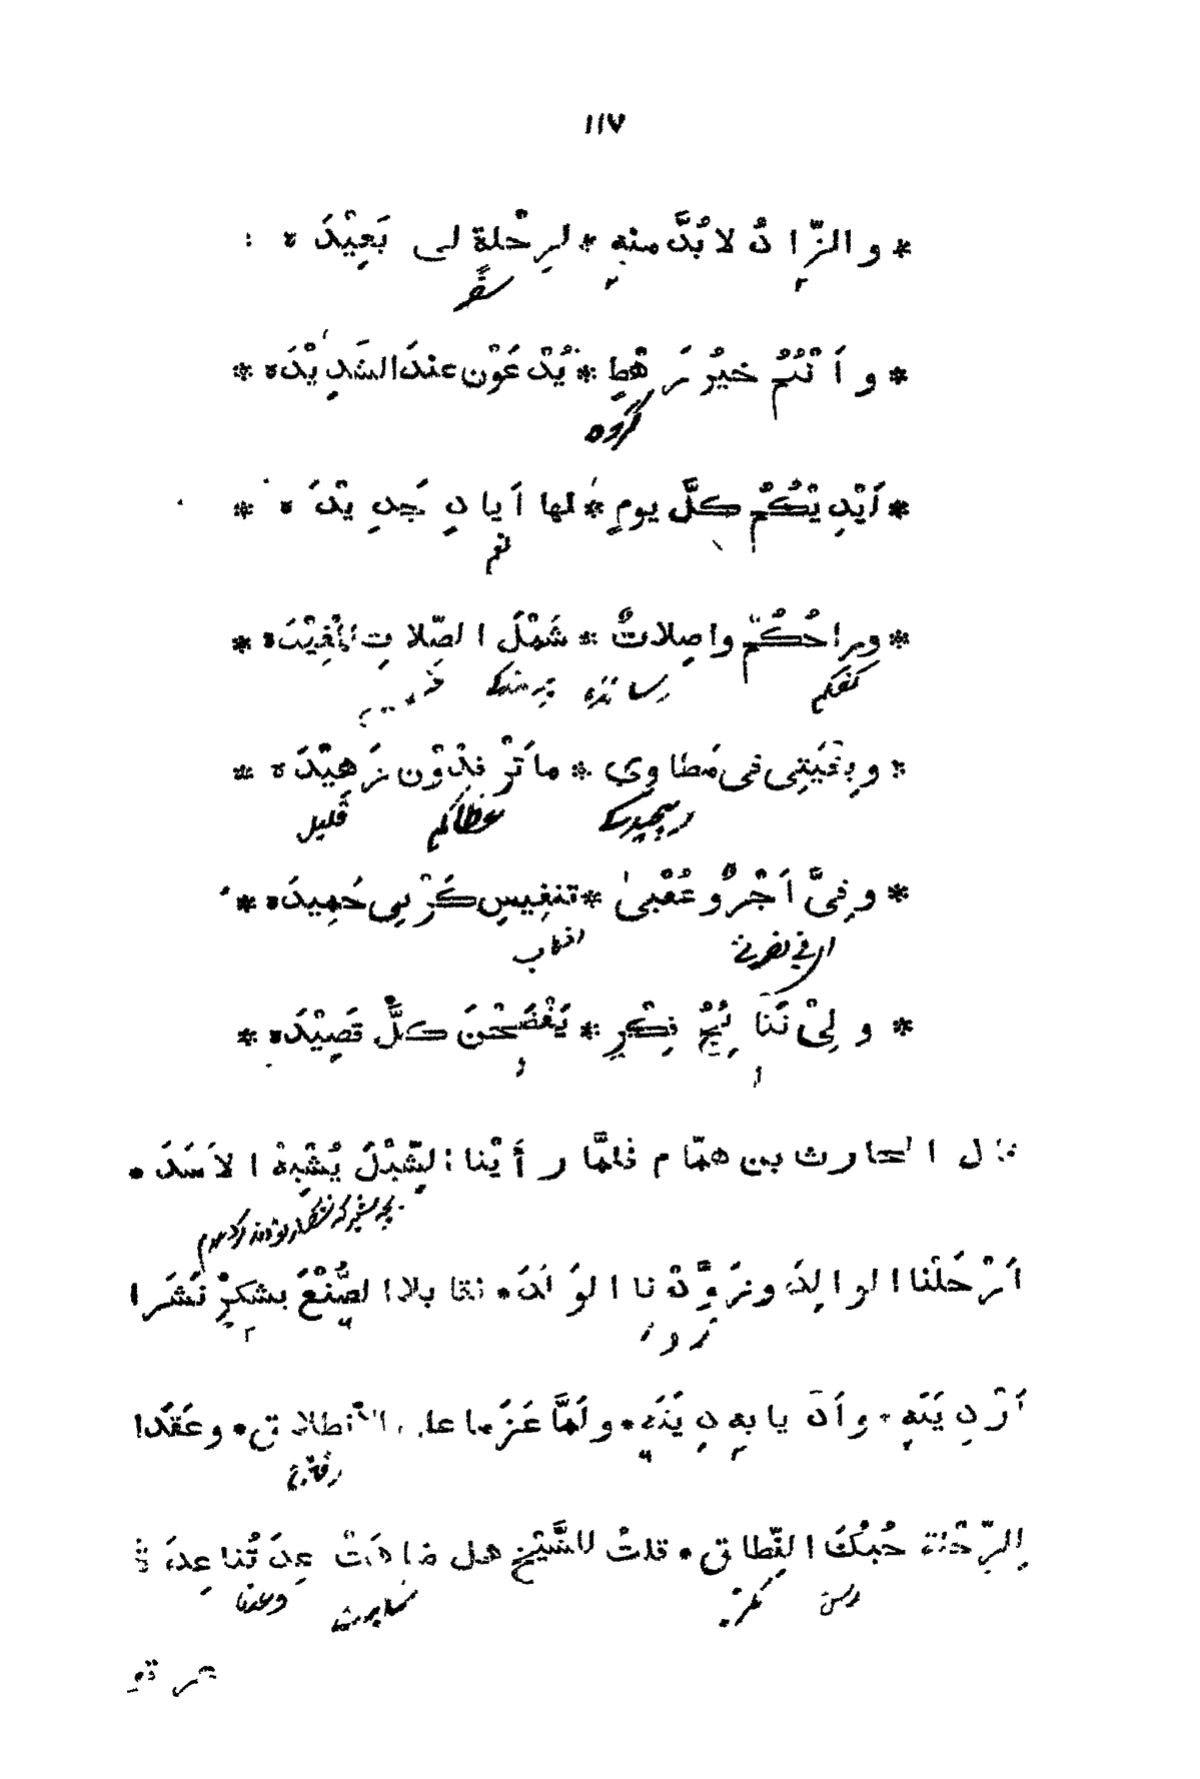 ١١٧
* و الزَّادُ لا بُدَّ منهِ * لرِحْلةٍ لى بَعِيْدَه
سفر
* و اَنْتُمُ خيرُ رَهْطٍ * تُدْعَوْن عندَ الشَدِيْدَه *
گروه
* اَيْدِيْكُمُ كلَّ يومٍ * لها اَيادٍ جَدِيْدَه *
نعم
* وراحُكُمْ واصِلاتٌ * شَمْلَ الصِّلاتِ المُفِيْدَه *
كفكم
* وبِغْيَتِى فى مَطاوِي * ما تَرْفِدُوْن زَهِيْدَه *
عطاكم قليل
* وفِىَّ اَجْرٌ وعُقْبىٰ * تنفِيسِ كَرْبِى حَمِيدَه *
* و لِىْ نَتَائِجُ فِكْرٍ * يَفْضَحْنَ كلَّ قَصِيْدَه *
قال الحارث بن همّام فلمَّا رأَيْنا الشِّبْلَ يُشْبِهُ الاَسَدَ •
اَرْحَلْنا الوالِدَ وزَوَّدْنا الوَلَدَ • فقابلا الصُّنْعَ بشُكرٍ نَشَرا
اَرْدِيَتَه • واَدَّيا بهِ دِيَتَه • ولَمَّا عَزَما على الاِنطلاقِ • وعَقَدا
للرِّحْلة حُبُكَ النِّطاقِ • قلتُ للشَّيْخِ هل ضاهَتْ عِدَتُنا عِدَةَ
عر قو